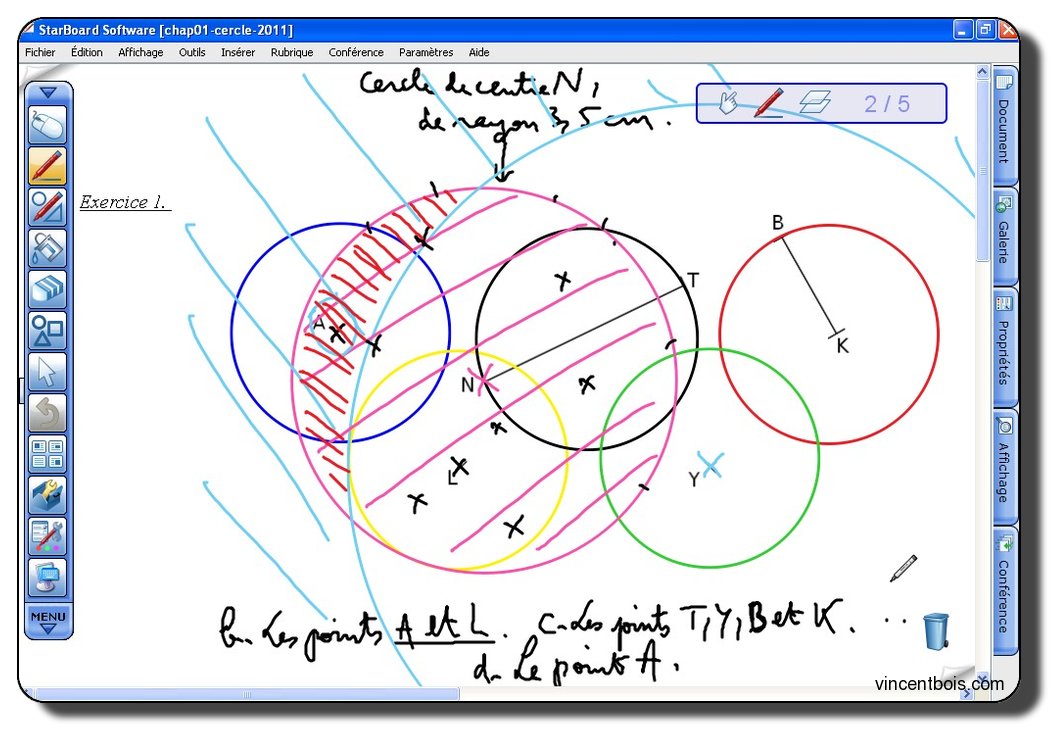 StarBoard Software [chap01-cercle-2011]
Fichier Édition Affichage Outils Insérer Rubrique Conférence Paramètres Aide
Cercle de centre N,
de rayon 3,5 cm.
2 / 5
Exercice 1.
B
T
A
K
N
L
Y
b. Les points A et L. c. Les points T, Y, B et K. ..
d. Le points A.
MENU
Document
Galerie
Propriétés
Affichage
Conférence
vincentbois.com